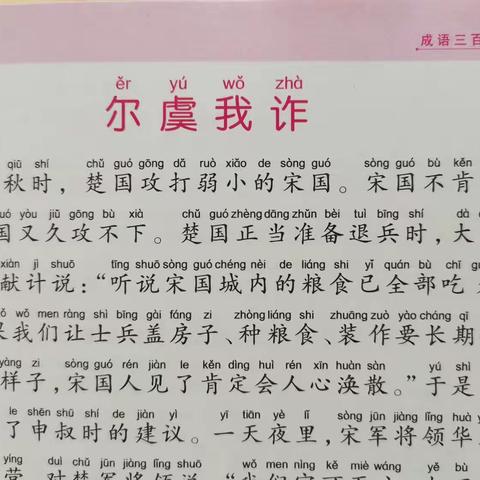 成语三百
ěr yú wǒ zhà
尔虞我诈
qiū shí chǔ guó gōng dǎ ruò xiǎo de sòng guó sòng guó bù kěn
秋时，楚国攻打弱小的宋国。宋国不肯
guó yòu jiǔ gōng bù xià chǔ guó zhèng dāng zhǔn bèi tuì bīng shí dà
国又久攻不下。楚国正当准备退兵时，大
xiàn jì shuō tīng shuō sòng guó chéng nèi de liáng shi yǐ quán bù chī
献计说：“听说宋国城内的粮食已全部吃
wǒ men ràng shì bīng gài fáng zi zhòng liáng shi zhuāng zuò yào cháng qī
我们让士兵盖房子、种粮食、装作要长期
yàng zi sòng guó rén jiàn le kěn dìng huì rén xīn huàn sàn yú shì
样子，宋国人见了肯定会人心涣散。”于是
le shēn shū shí de jiàn yì yī tiān yè lǐ sòng jūn jiàng lǐng huà
了申叔时的建议。一天夜里，宋军将领华
yíng duì chǔ jūn jiàng lǐng shuō wǒ men nìng kě miè wáng yě bù
营，对楚军将领说：“我们宁可灭亡，也不